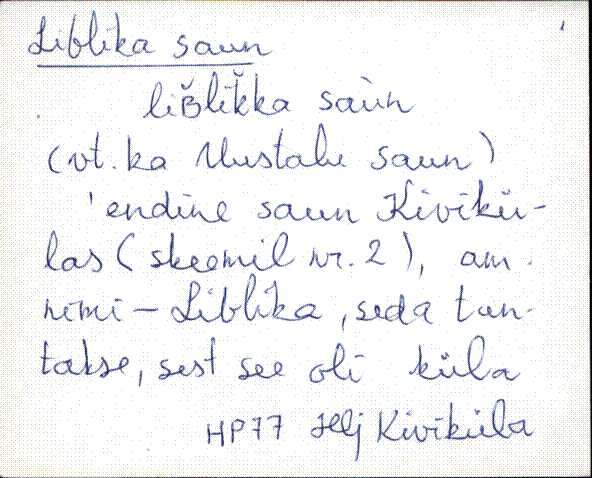 Liblika saun
liʙ̆lik̆ka saùn
(vt. ka Uustalu saun)
'endine saun Kivikü-
las (skeemil nr. 2), am.
nimi – Liblika, seda tun-
takse, sest see oli küla
HP77 Hlj Kiviküla